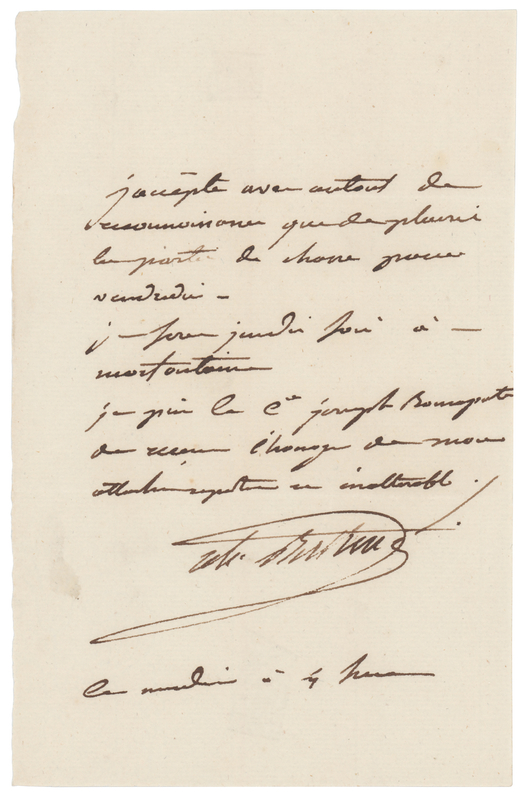 j'accepte avec autant de
reconnoissance que de plaisir
la partie de chasse pour
vendredi -
je serai jeudi soir à -
mortfontaine
je prie le Cen joseph Bonaparte
de recevoir l'homage de mon
attachement inaltérable.
le mardi à 4 heures